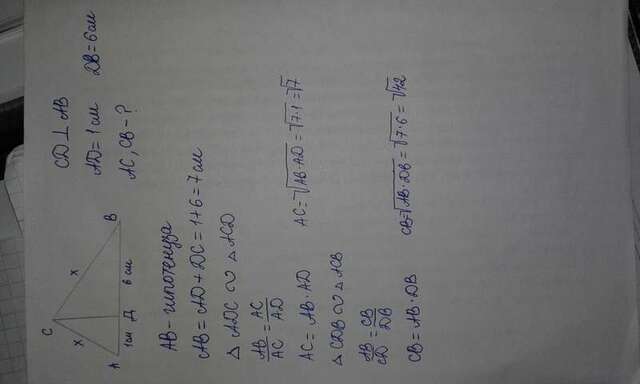 C
x x
A 1см Д 6 см B
CD ⊥ AB
AD = 1 см DB = 6 см
AC, CB - ?
AB - гипотенуза
AB = AD + DC = 1+6 = 7 см
△ ADC ∾ △ ACD
AB/AC = AC/AD
AC = AB · AD AC = √AB·AD = √7·1 = √7
△ CDB ∾ △ ACB
AB/CD = CB/DB
CB = AB · DB CB = √AB·DB = √7·6 = √42